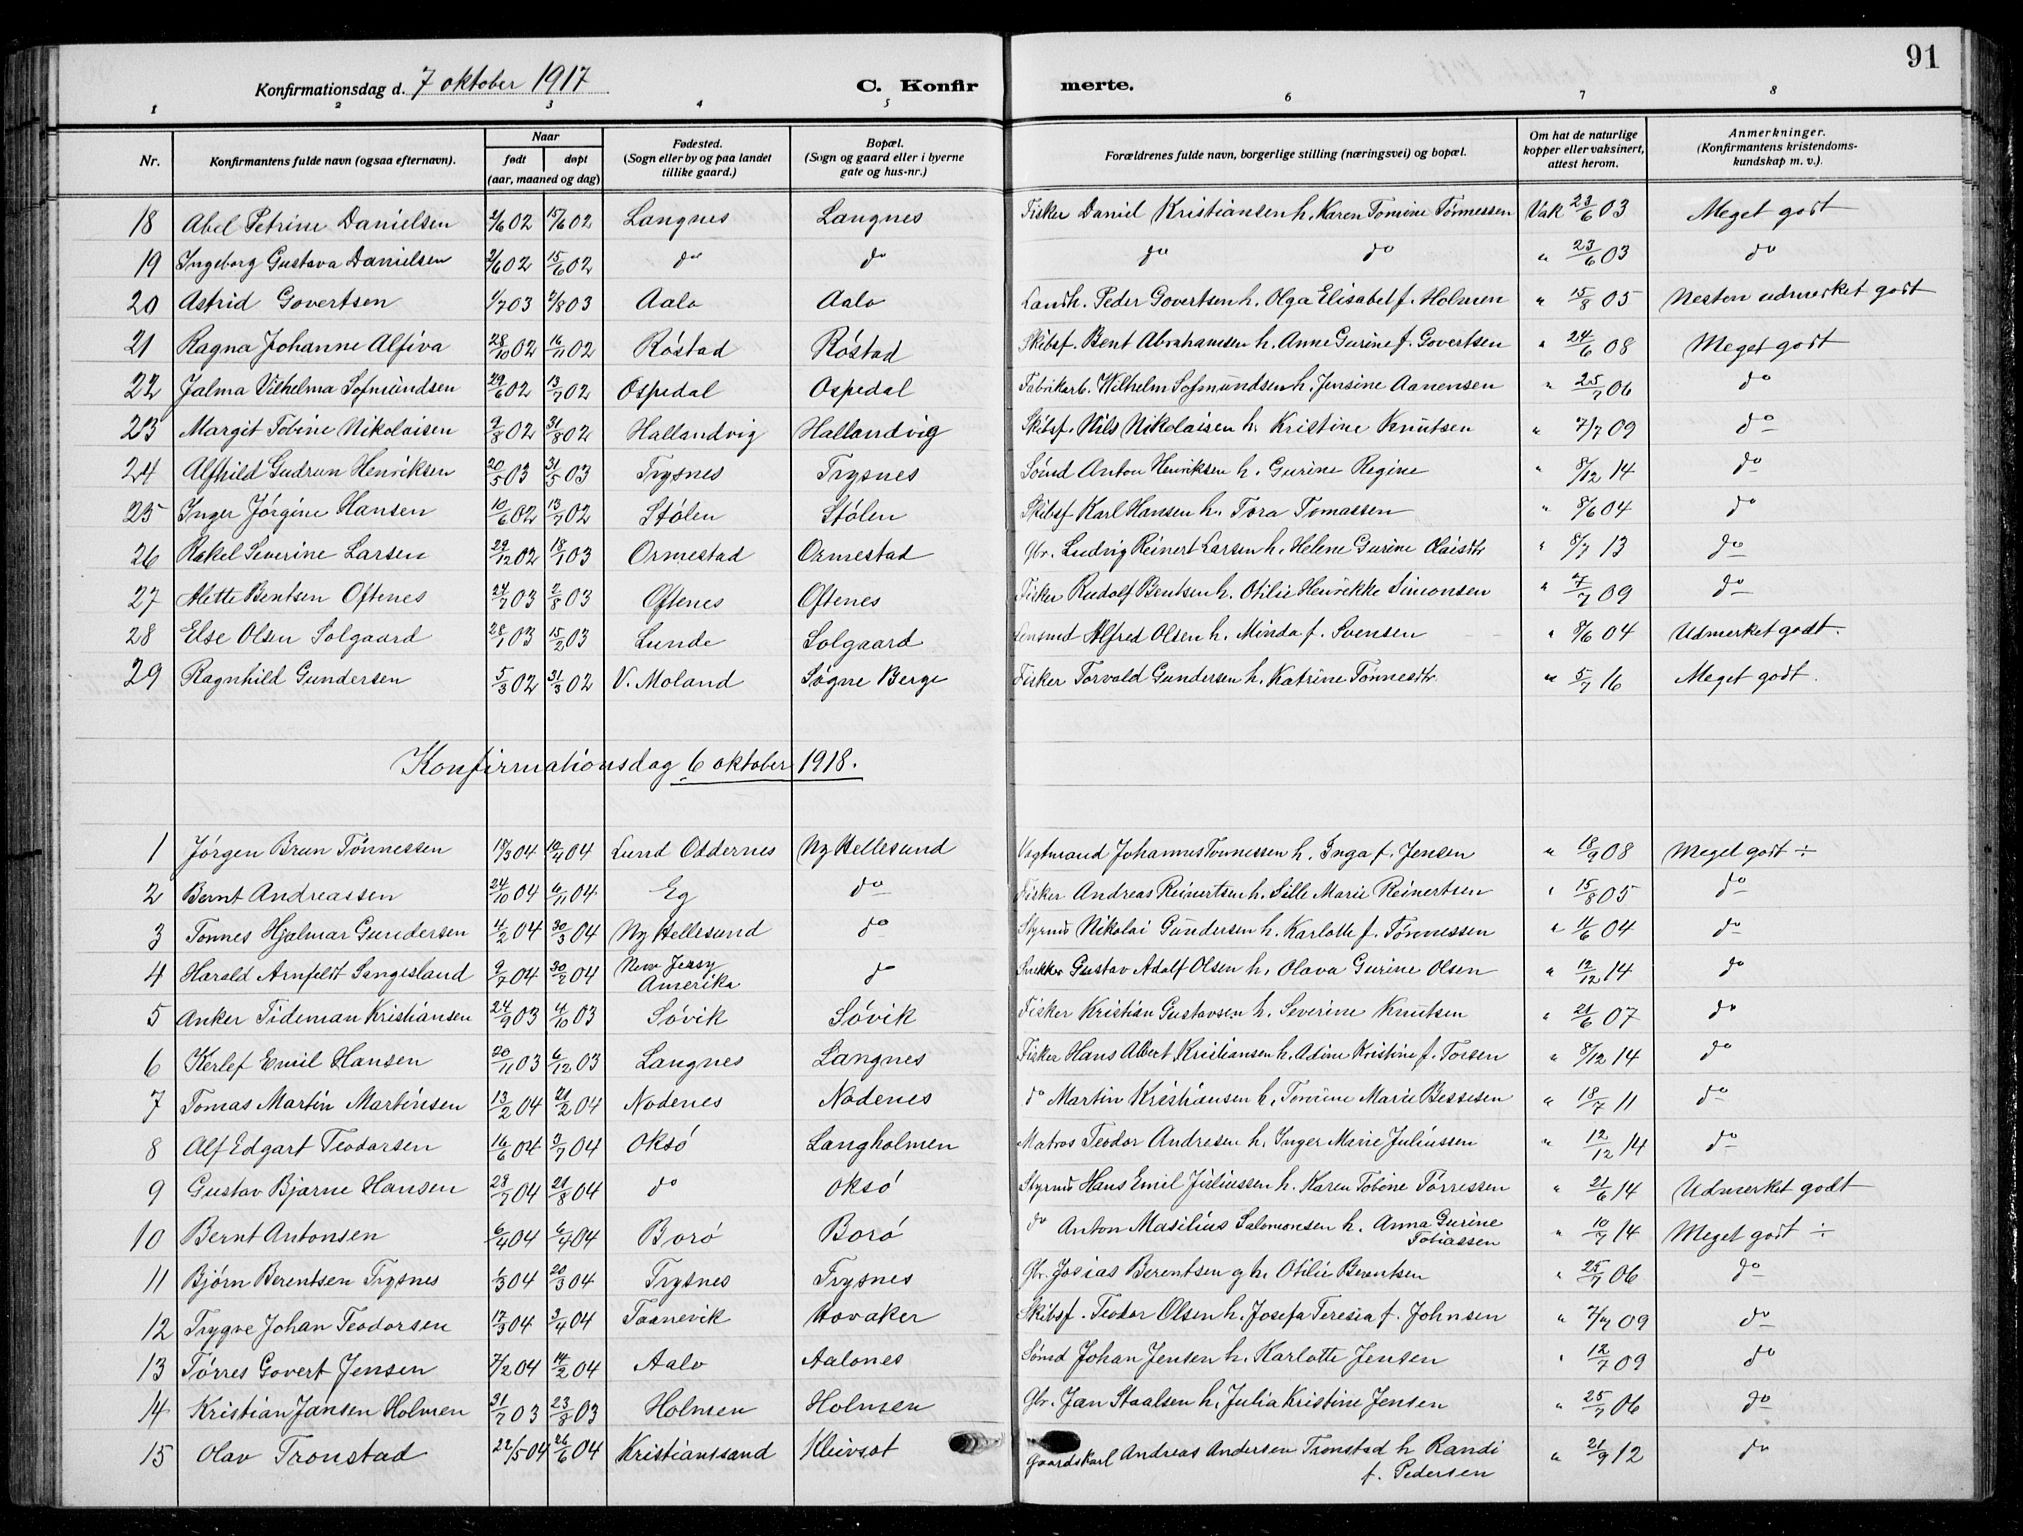 91
Konfirmationsdag d. 7 oktober 1917 C. Konfirmerte.
1 2 3 4 5 6 7 8
Nr. Konfirmantens fulde navn (ogsaa efternavn). Naar født døpt (aar, maaned og dag) Fødested. (Sogn eller by og paa landet tillike gaard.) Bopæl. (Sogn og gaard eller i byerne gate og hus-nr.) Forældrenes fulde navn, borgerlige stilling (næringsvei) og bopæl. Om hat de naturlige kopper eller vaksinert, attest herom. Anmerkninger. (Konfirmantens kristendomskundskap m. v.).
18 Abel Petrine Danielsen 2/6 02 15/6 02 Langnes Langnes Fisker Daniel Kristiansen h. Karen Tomine Tønnessen Vak 23/6 03 Meget godt
19 Ingeborg Gustava Danielsen 2/6 02 15/6 02 do do do do " 23/6 03 do
20 Astrid Govertsen 1/7 03 2/8 03 Aalo Aalo Landh. Peder Govertsen h. Olga Elisabet f. Holmen " 15/8 05 Nesten udmerket godt
21 Ragna Johanne Alfiva 28/10 02 16/11 02 Róstad Róstad Skibsf. Bent Abrahamsen h. Anne Gurine f. Govertsen " 24/6 08 Meget godt
22 Jalma Vilhelma Sofmundsen 29/6 02 13/7 02 Ospedal Ospedal Fabrikarb. Wilhelm Sofmundsen h. Jensine Aanensen " 25/7 06 do
23 Margit Tobine Nikolaisen 9/8 02 31/8 02 Hallandvig Hallandvig Skibsf. Nils Nikolaisen h. Kristine Knutsen " 7/7 09 do
24 Alfhild Gudrun Henriksen 20/5 03 31/5 03 Trysnes Trysnes Sømd Anton Henriksen h. Gurine Regine " 8/12 14 do
25 Inger Jørgine Hansen 10/6 02 13/7 02 Stólen Stólen Skibsf Karl Hansen h. Tora Tomassen " 8/6 04 do
26 Rakel Severine Larsen 29/12 02 18/1 03 Ormestad Ormestad Gbr. Ludvig Reinert Larsen h. Helene Gurine Olaisdtr " 8/7 13 do
27 Mette Bentsen Oftenes 24/7 03 2/8 03 Oftenes Oftenes Fisker Rudolf Bentsen h. Otilie Henrikke Simonsen " 7/7 09 do
28 Else Olsen Solgaard 28/1 03 15/2 03 Lunde Solgaard Lensmd Alfred Olsen h. Minda f. Svensen " 8/6 04 Udmerket godt.
29 Ragnhild Gundersen 5/3 02 31/3 02 V. Moland Søgne Berge Fisker Torvald Gundersen h. Katrine Tønnesdtr " 5/7 16 Meget godt.
Konfirmationsdag 6 oktober 1918.
1 Jørgen Brun Tønnessen 04 10/4 04 Lund Oddernes Ny Hellesund Vagtmand Johannes Tønnessen h. Inga f. Jensen " 18/9 08 Meget godt ÷
2 Bernt Andreassen 24/10 04 6/11 04 Eg do Fisker Andreas Reinertsen h. Sille Marie Reinertsen " 15/8 05 do
3 Tønnes Hjalmar Gundersen 4/2 04 30/3 04 Ny Hellesund do Styrmd Nikolai Gundersen h. Karlotte f. Tønnessen " 11/6 04 do
4 Harald Arnfeldt Sangesland 9/7 04 30/ 04 New Jersy Amerika do Snekker Gustav Adolf Olsen h. Olava Gurine Olsen " 12/12 14 do
5 Anker Tideman Kristiansen 24/9 03 4/10 03 Sóvik Sóvik Fisker Kristian Gustavsen h. Severine Knutsen " 21/6 07 do
6 Kerlef Emil Hansen 20/11 03 6/12 03 Langnes Langnes Fisker Hans Albert Kristiansen h. Adine Kristine f. Torsen " 8/12 14 do
7 Tomas Martin Martinsen 13/2 04 21/2 04 Nodenes Nodenes do Martin Kristiansen h. Tomine Marie Bessesen " 18/7 11 do
8 Alf Edgart Teodorsen 16/6 04 3/7 04 Oksó Langholmen Matros Teodor Andresen h. Inger Marie Juliussen " 12/12 14 do
9 Gustav Bjarne Hansen 28/7 04 21/8 04 do Oksó Styrmd Hans Emil Juliussen h. Karen Tobine Tørressen " 21/6 14 Udmerket godt
10 Bernt Antonsen 6/4 04 6/4 04 Boró Boró do Anton Masilius Salomonsen h. Anna Gurine Tobiassen " 10/7 14 Meget godt ÷
11 Bjørn Berentsen Trysnes 1/3 04 20/3 04 Trysnes Trysnes Gbr. Josias Berentsen g h. Otilie Berentsen " 25/7 06 do
12 Trygve Johan Teodorsen 17/3 04 3/4 04 Taanevik Hovaker Skibsf. Teodor Olsen h. Josefa Teresia f. Johnsen " 7/7 09 do
13 Tørres Govert Jensen 7/2 04 14/2 04 Aalo Aalones Sømd Johan Jensen h. Karlotte Jensen " 12/7 09 do
14 Kristian Jansen Holmen 31/7 03 23/8 03 Holmen Holmen Gbr. Jan Staalsen h. Julia Kristine Jensen " 25/7 06 do
15 Olav Tronstad 22/5 04 26/6 04 Kristianssand Kleivset Gaardskarl Andreas Andersen Tronstad h Randi f. Pedersen " 21/9 12 do